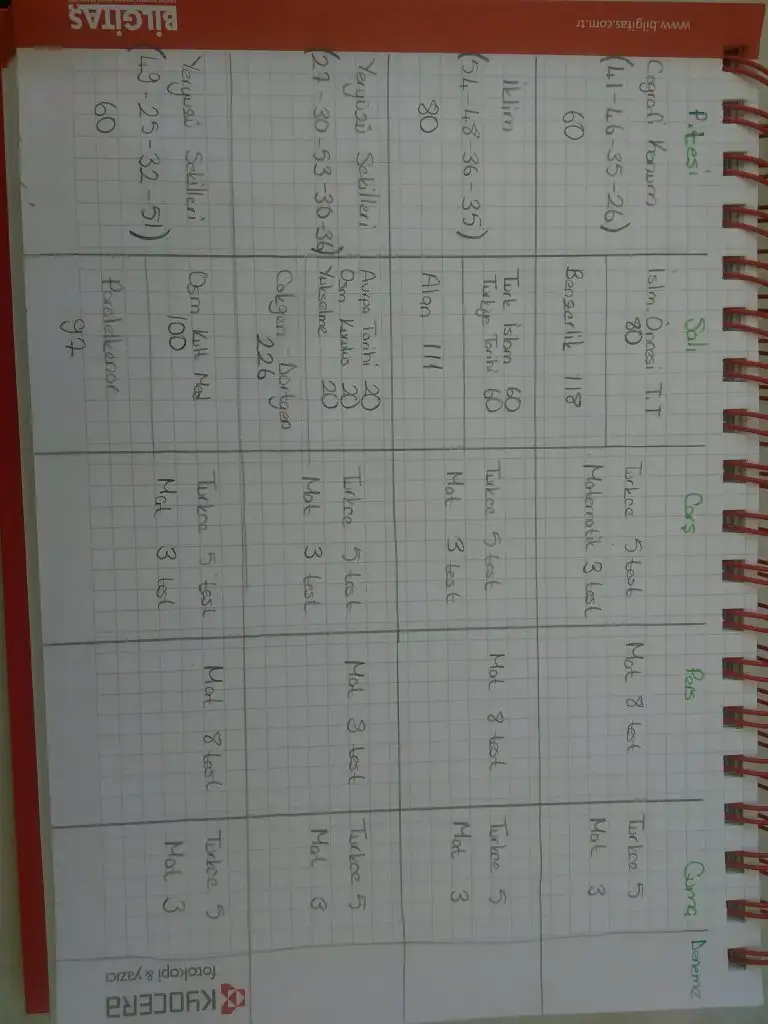 P.tesi
Salı
Çarş
Perş
Cuma
Deneme
Coğrafi Konum
(41-46-35-26)
60
İslm. Öncesi T.T
80
Benzerlik 118
Turkce 5 test
Matematik 3 test
Mat 8 test
Turkce 5
Mat 3
İklim
(54-48-36-35)
80
Turk İslam 60
Turkiye Tarihi 60
Alan 111
Turkce 5 test
Mat 3 test
Mat 8 test
Turkce 5
Mat 3
Yeryüzü Sekilleri
(27-30-53-30-36)
Avrupa Tarihi 20
Osm Kurulus 20
Yukselme 20
Cokgen Dörtgen
226
Turkce 5 test
Mat 3 test
Mat 8 test
Turkce 5
Mat 3
Yeryüzü Sekilleri
(49-25-32-51)
60
Osm Kult Med
100
Paralelkenar
97
Turkce 5 test
Mat 3 test
Mat 8 test
Turkce 5
Mat 3
www.bilgitas.com.tr
BİLGİTAŞ
KYOCERA
fotokopi & yazıcı